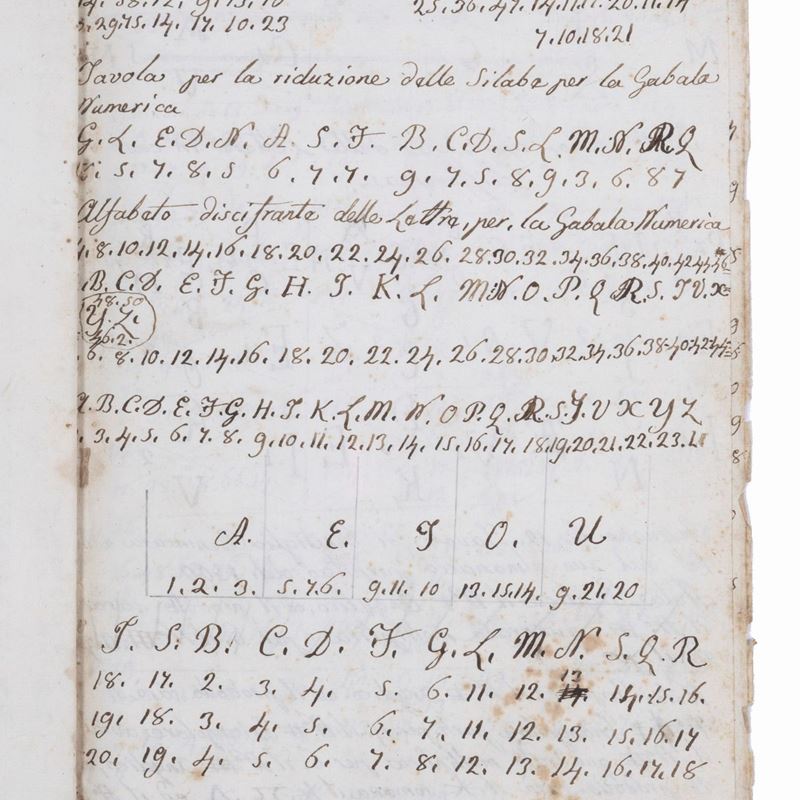 25.36.47.14.11.17.20.11.14
29.15.14.17.10.23
7.10.18.21
Tavola per la riduzione delle Silabe per la Gabala
Numerica
G. L. E. D. N. A. S. F. B. C. D. S. L. M. N. R Q
5. 7. 8. 5 6. 7. 7. 9. 7. 5. 8. 9. 3. 6. 8 7
Alfabeto discifrante delle Lettre, per, la Gabala Numerica
8. 10. 12. 14. 16. 18. 20. 22. 24. 26. 28. 30. 32. 34. 36. 38. 40. 42
B. C. D. E. F. G. H. I. K. L. M. N. O. P. Q. R. S. T. V. X
48. 50
Y. Z.
46. 2.
6. 8. 10. 12. 14. 16. 18. 20. 22. 24. 26. 28. 30. 32. 34. 36. 38. 40. 42
B. C. D. E. F. G. H. I. K. L. M. N. O P. Q. R. S. T V X Y Z
3. 4. 5. 6. 7. 8. 9. 10. 11. 12. 13. 14. 15. 16. 17. 18. 19. 20. 21. 22. 23.
A. E. I O. U
1. 2. 3. 5. 7. 6. 9. 11. 10 13. 15. 14. 9. 21. 20
T. S. B. C. D. F. G. L. M. N. S. Q. R
13
18. 17. 2. 3. 4. 5. 6. 11. 12. 14. 15. 16.
19. 18. 3. 4. 5. 6. 7. 11. 12. 13. 15. 16. 17
20. 19. 4. 5. 6. 7. 8. 12. 13. 14. 16. 17. 18